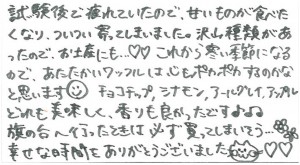 試験後で疲れていたので、甘いものが食べた
くなり、ついつい寄ってしまいました。沢山種類があ
ったので、お土産にも…♡♡ これから寒い季節になる
ので、あたたかいワッフルは心もポカポカするのかな
と思います☺ チョコチップ、シナモン、アールグレイ、アップル
どれも美味しく、香りも良かったです♪♪♪
旗の台へ行ったときは必ず買ってしまいそう…
幸せな時間をありがとうございました♡♡